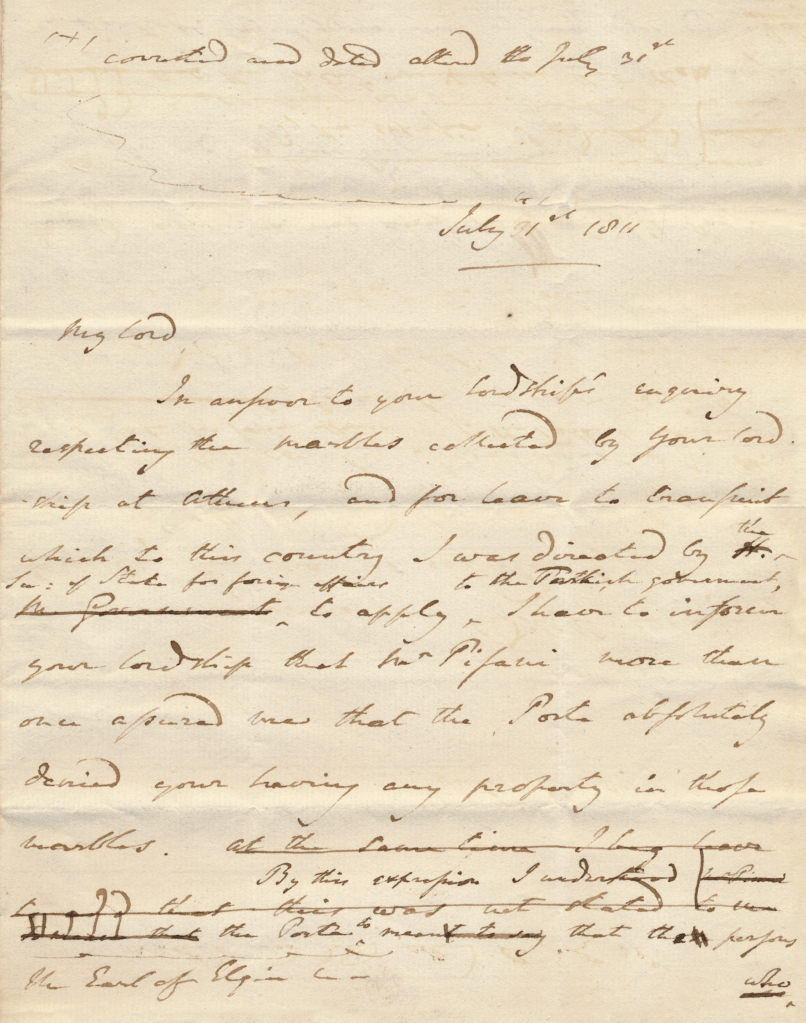 corrected and dated altered the July 31st
July 31st 1811
My Lord
In answer to your lordship's enquiry
respecting the marbles collected by your Lord-
ship at Athens, and for leave to transport
which to this country I was directed by the H.
Sec: of State for foreign affairs to the Turkish government,
M. Government to apply, I have to inform
your lordship that Mr Pisani more than
once assured me that the Porte absolutely
denied your having any property in those
marbles. at the same time I beg leave
By this expression I understood
to add that this was not stated to me
to mean that the Porte to meant to say that the persons
The Earl of Elgin
who